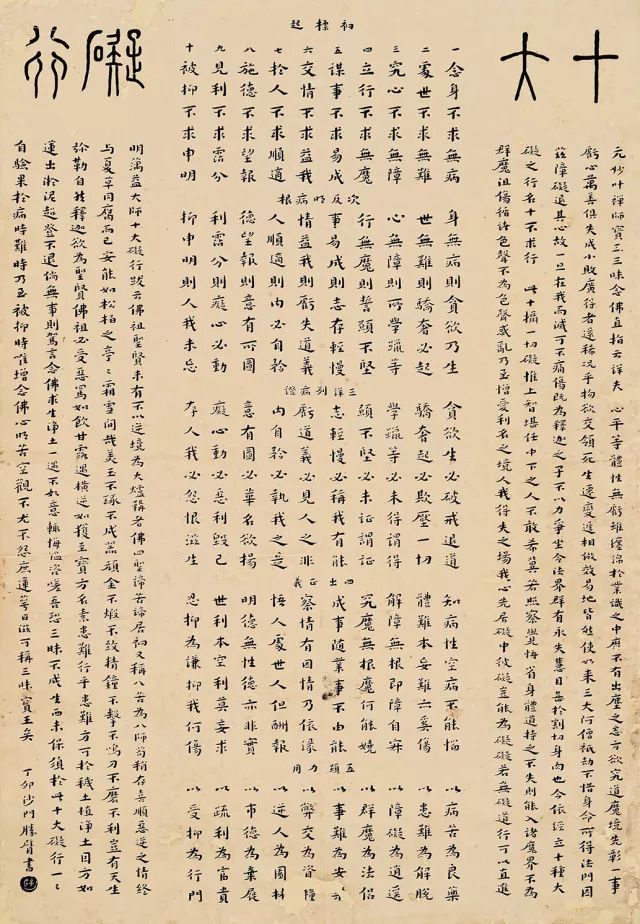 十大礙行
元妙叶禪師寶王三昧念佛直指詳夫 心平等體性無虧雖纏綿於業識之中靡不有出塵之志方欲究道魔境先彰一事
虧心萬善俱失成小敗廣行者邊稀況乎物欲交傾死生遷變遞相倣效易地皆然使如來三大阿僧祇劫不惜身命所得法門因
茲障礙退其心故一旦在我而滅可不痛傷既為釋迦之子不以力爭坐令法界群有永失慧目甚於割切身肉也今依經立十種大
礙之行名十不求行 此十攝一切礙惟上智堪任中下之人不敢希冀若照察覺悟省身體道持之不失則能入諸魔界不為
群魔沮傷循諸色聲不為色聲惑亂乃至憎愛利名之境人我得失之場我心先居礙中彼礙豈能為礙礙若無礙道行可以直進
初標起
一念身不求無病
二處世不求無難
三究心不求無障
四立行不求無魔
五謀事不求易成
六交情不求益我
七於人不求順適
八施德不求望報
九見利不求霑分
十被抑不求申明
次反明病根
身無病則貪欲乃生
世無難則驕奢必起
心無障則所學躐等
行無魔則誓願不堅
事易成則志存輕慢
情益我則虧失道義
人順適則內必自矜
德望報則意有所圖
利霑分則癡心必動
抑申明則人我未忘
三詳列病證
貪欲生必破戒退道
驕奢起必欺壓一切
學躐等必未得謂得
願不堅必未證謂證
志輕慢必稱我有能
虧道義必見人之非
內自矜必執我之是
意有圖必華名欲揚
癡心動必惡利毀己
存人我必怨恨滋生
四出正義
知病性空病不能惱
體難本妄難亦奚傷
解障無根即障自寂
究魔無根魔何能嬈
成事隨業事不由能
察情有因情乃依緣
悟人處世人但酬報
明德無性德亦非實
世利本空利莫妄求
忍抑為謙抑我何傷
五顯力用
以病苦為良藥
以患難為解脫
以障礙為逍遙
以群魔為法侶
以事難為安樂
以弊交為資糧
以逆人為園林
以市德為棄屣
以疏利為富貴
以受抑為行門
明蕅益大師十大礙行跋云佛祖聖賢未有不以逆境為大爐鞴者佛四聖諦苦諦居初又稱八苦為八師苟稍存喜順惡逆之情終
與夏草同腐而已安能如松柏之亭亭霜雪間哉美玉不琢不成器頑金不煅不致精鐘不擊不鳴刀不磨不利豈有天生
彌勒自然釋迦欲為聖賢佛祖必受惡罵如飲甘露遇橫逆如獲至寶方名素患難行乎患難方可於穢土植淨土因方如
蓮出淤泥超登不退倘無事則駕言念佛求生淨土一遇不如意輒悔咨嗟吾恐三昧不成生西未保須於此十大礙行一一
自驗果於病時難時乃至被抑時唯增念佛心明苦空觀不尤不怨庶蓮萼日滋可稱三昧寶王矣 丁卯沙門勝臂書